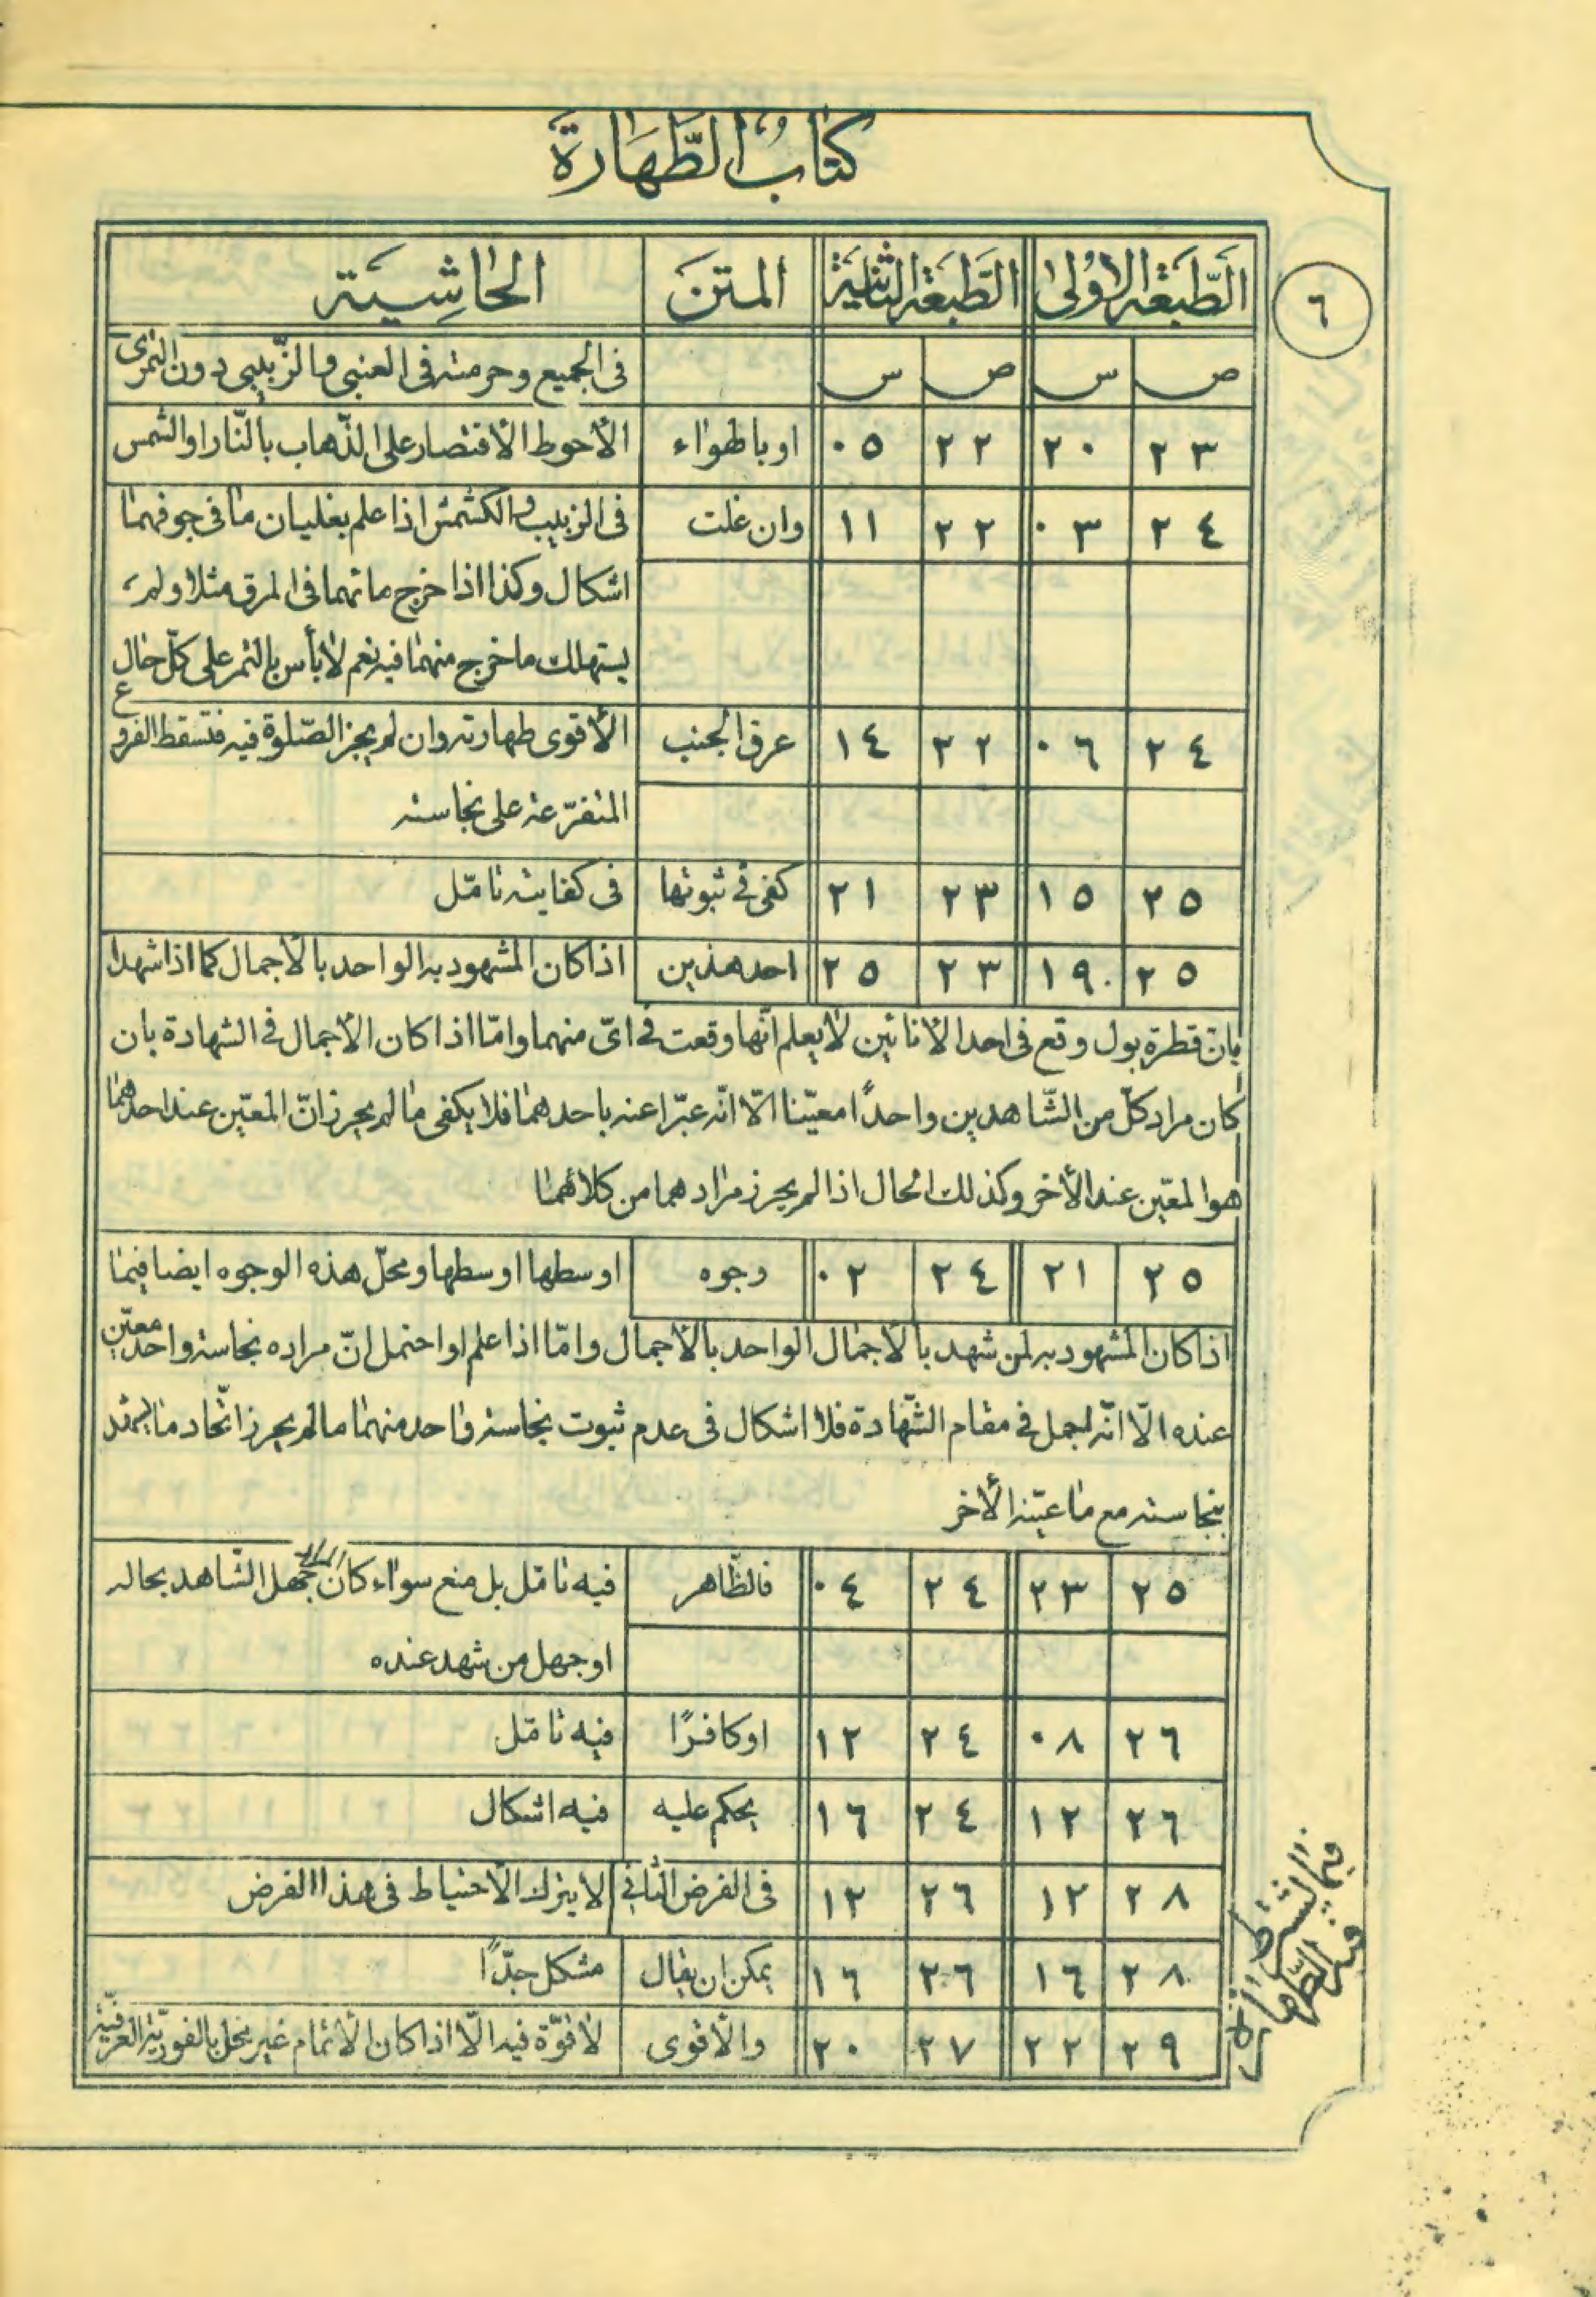 كتاب الطهارة
٦
الطبعة الاولى الطبعة الثانية المتن الحاشية
ص س ص س في الجميع وحرمته في العنبي والزبيبي دون التمري
٢٣ ٢٠ ٢٢ ٠٥ او بالهواء الأحوط الاقتصار على الذهاب بالنار او الشمس
٢٤ ٠٣ ٢٢ ١١ وان غلت في الزبيب والكشمش اذا علم بغليان ما في جوفهما
اشكال وكذا اذا خرج مائهما في المرق مثلا ولم
يستهلك ما خرج منهما فيه نعم لا بأس بالتمر على كل حال
٢٤ ٠٦ ٢٢ ١٤ عرق الجنب الأقوى طهارته وان لم يجز الصلوة فيه فتسقط الفروع
المتفرعة على نجاسته
٢٥ ١٥ ٢٣ ٢١ كفى في ثبوتها في كفايته تامّل
٢٥ ١٩ ٢٣ ٢٥ احد هذين اذا كان المشهود به الواحد بالأجمال كما اذا شهدا
بان قطرة بول وقع في احد الأنائين لا يعلم انّها وقعت في ايّ منهما وامّا اذا كان الأجمال في الشهادة بان
كان مراد كلّ من الشّاهدين واحدًا معيّنا الّا انّه عبّرا عنه باحدهما فلا يكفى ما لم يحرز انّ المعيّن عند احدهما
هو المعيّن عند الأخر وكذلك الحال اذا لم يحرز مرادهما من كلاهما
٢٥ ٢١ ٢٤ ٠٢ وجوه اوسطها اوسطها ومحلّ هذه الوجوه ايضا فيما
اذا كان المشهود به لمن شهد بالاجمال الواحد بالأجمال وامّا اذا علم او احتمل انّ مراده نجاسة واحد معيّن
عنده الّا انّه اجمل في مقام الشّهادة فلا اشكال في عدم ثبوت نجاسة واحد منهما ما لم يحرز اتّحاد ما
بنجاسته مع ما عيّنه الأخر
٢٥ ٢٣ ٢٤ ٠٤ فالظّاهر فيه تامّل بل منع سواء كان المراد جهل الشّاهد بحاله
او جهل من شهد عنده
٢٦ ٠٨ ٢٤ ١٢ او كافرًا فيه تامّل
٢٦ ١٢ ٢٤ ١٦ يحكم عليه فيه اشكال
٢٨ ١٢ ٢٦ ١٢ في الفرض الثاني لا يترك الاحتياط في هذا الفرض
٢٨ ١٦ ٢٦ ١٦ يمكن ان يقال مشكل جدًّا
٢٩ ٢٢ ٢٧ ٢٠ والأقوى لا قوّة فيه الّا اذا كان الأتمام غير مخل بالفوريّة العرفيّة
فيما يشترط
فيه الطهارة